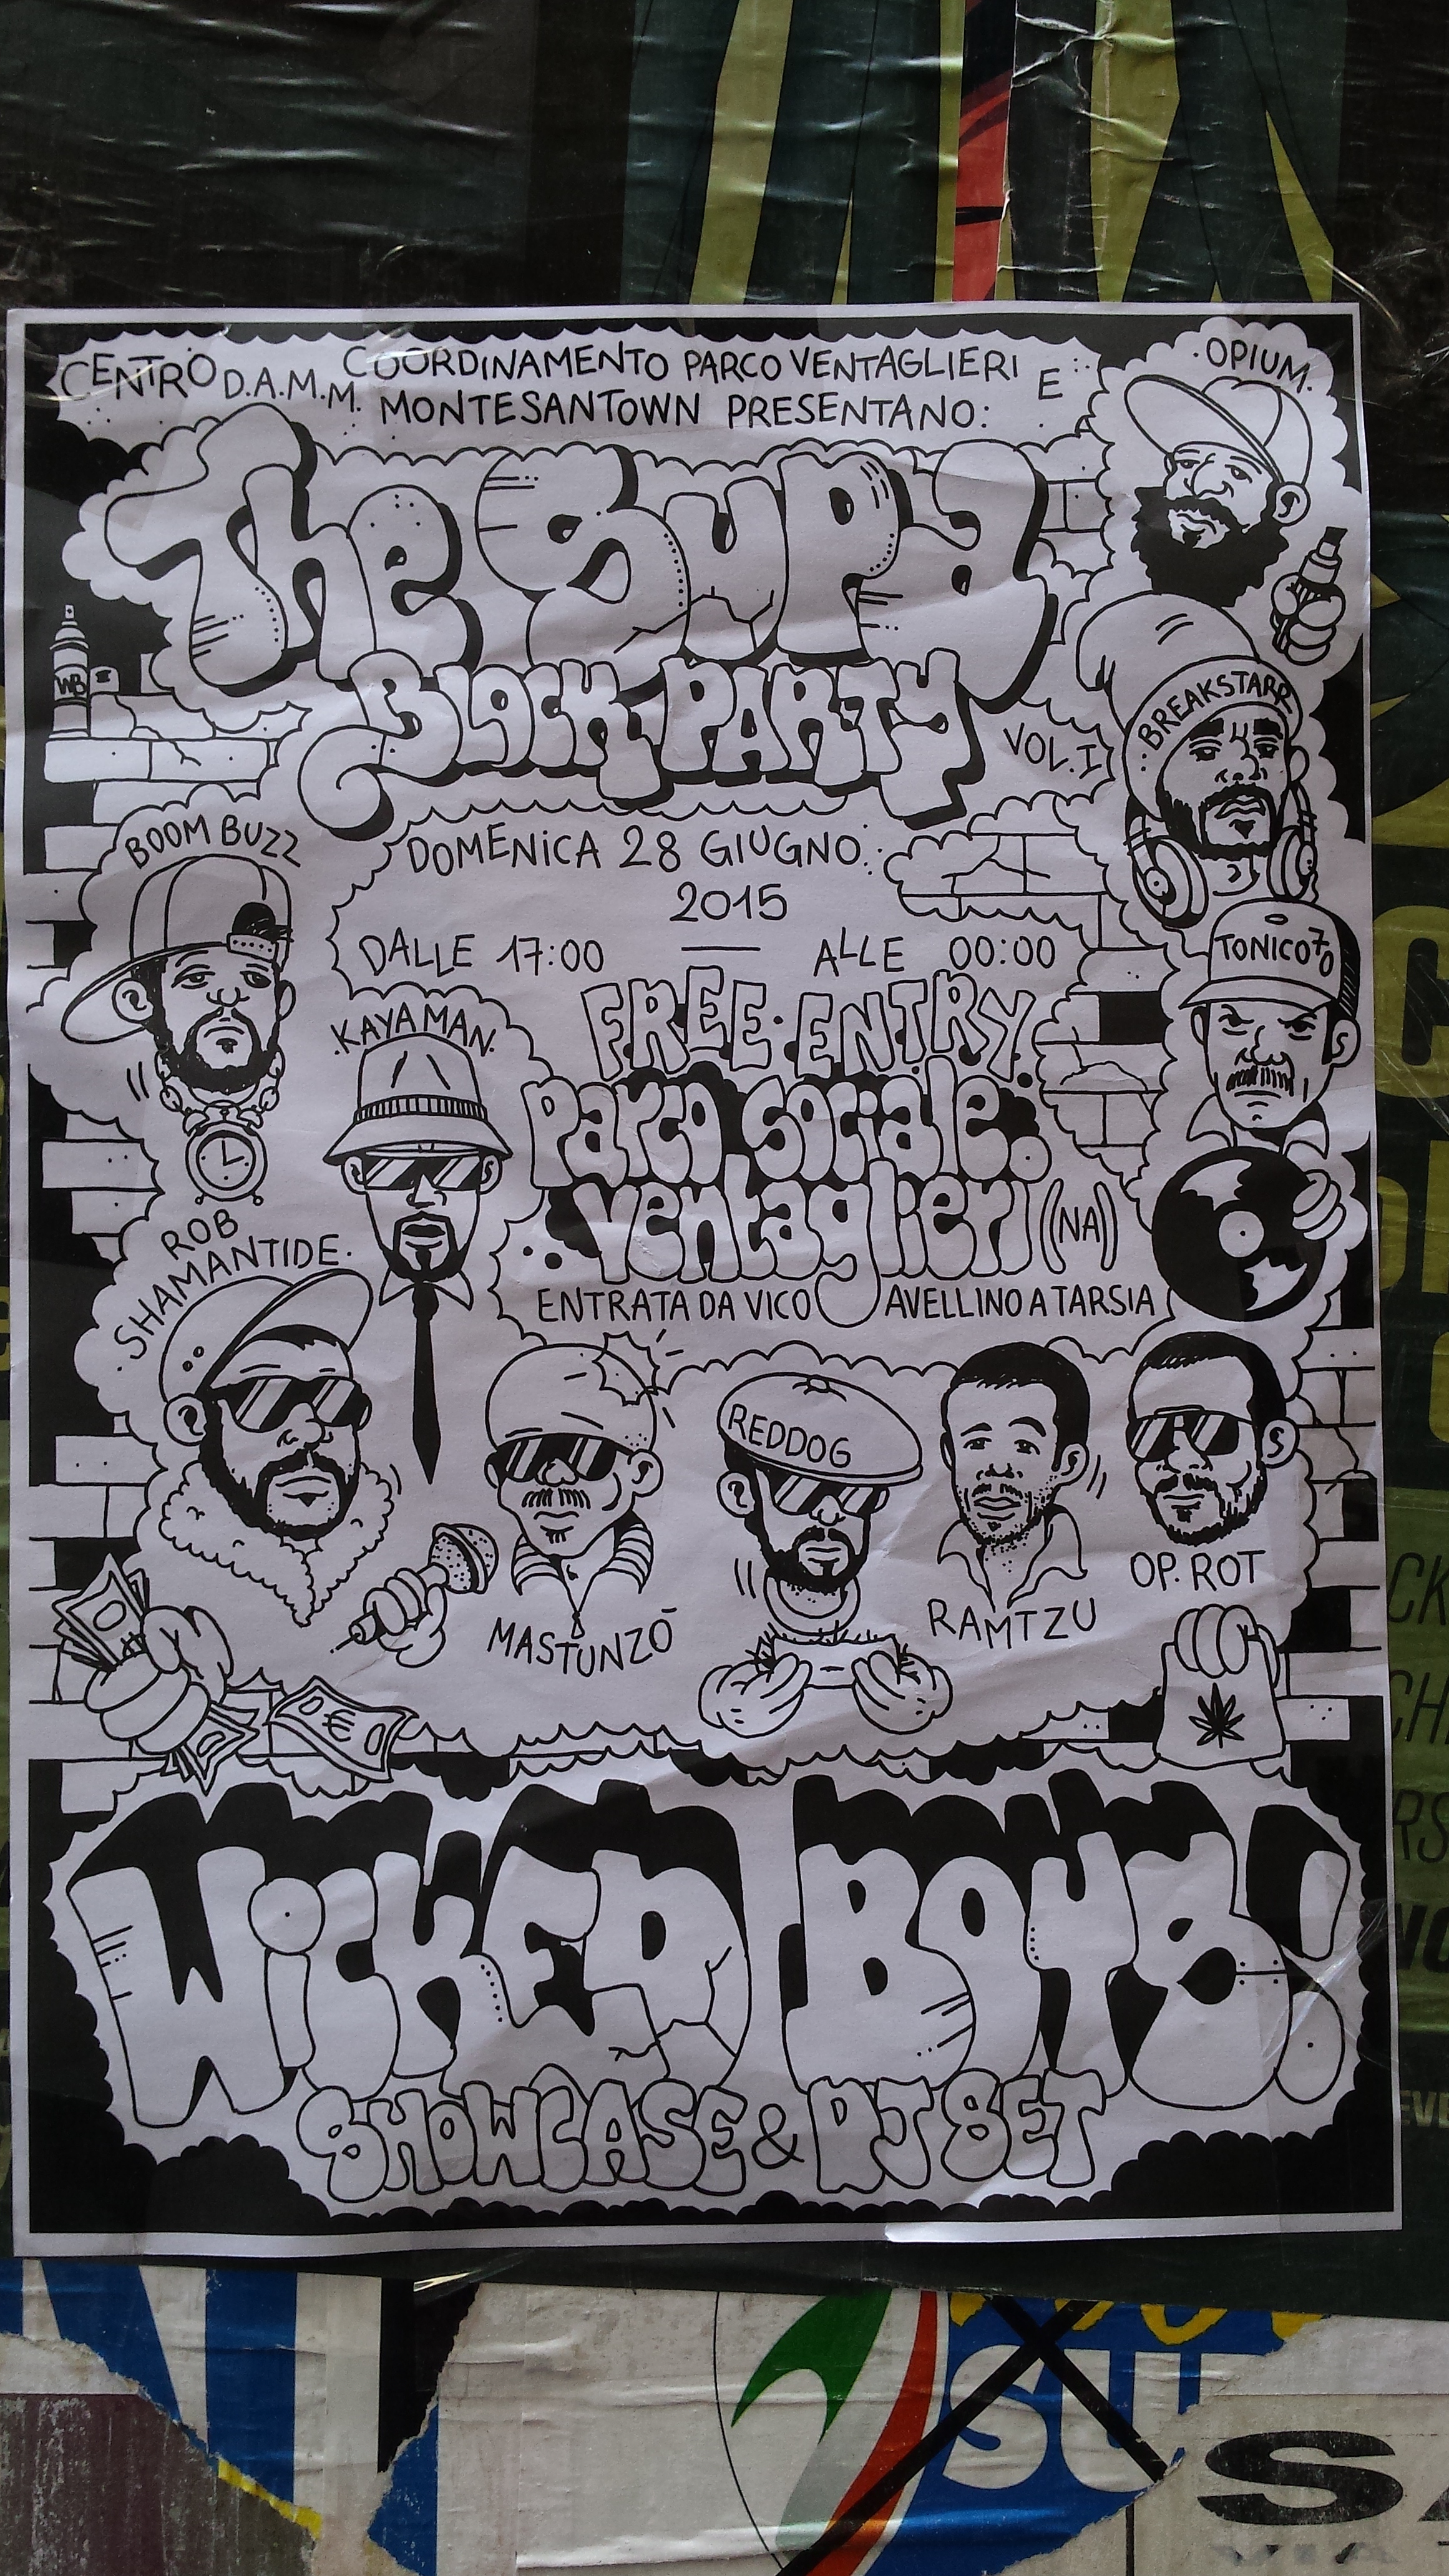 CENTRO D.A.M.M. COORDINAMENTO PARCO VENTAGLIERI E
MONTESANTOWN PRESENTANO:
·OPIUM·
The Supa
BLOCK PARTY
VOL.I
WB
BREAKSTARR
BOOM BUZZ
DOMENICA 28 GIUGNO
2015
DALLE 17:00 — ALLE 00:00
TONICO70
·KAYAMAN·
FREE·ENTRY
Parco Sociale
Ventaglieri (NA)
ENTRATA DA VICO AVELLINO A TARSIA
ROB
·SHAMANTIDE·
REDDOG
MASTUNZÓ
RAMTZU
OP. ROT
€
WICKED BOYS!
SHOWCASE & DJ SET
SU
SA